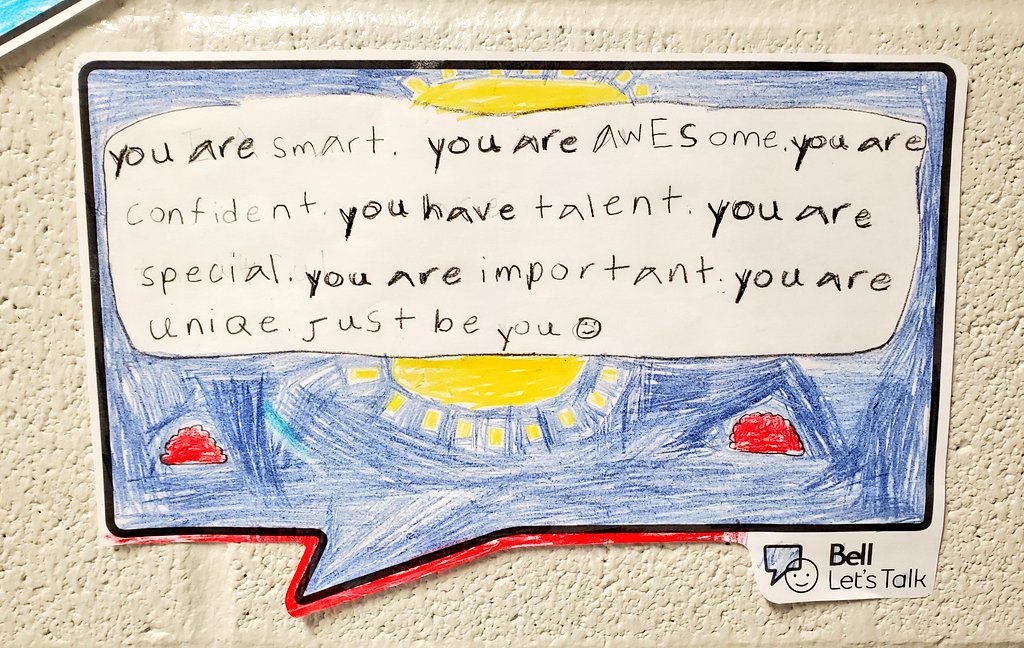 you are smart. you are AWESome. you are
confident. you have talent. you are
special. you are important. you are
uniqe. Just be you ☺
Bell
Let's Talk